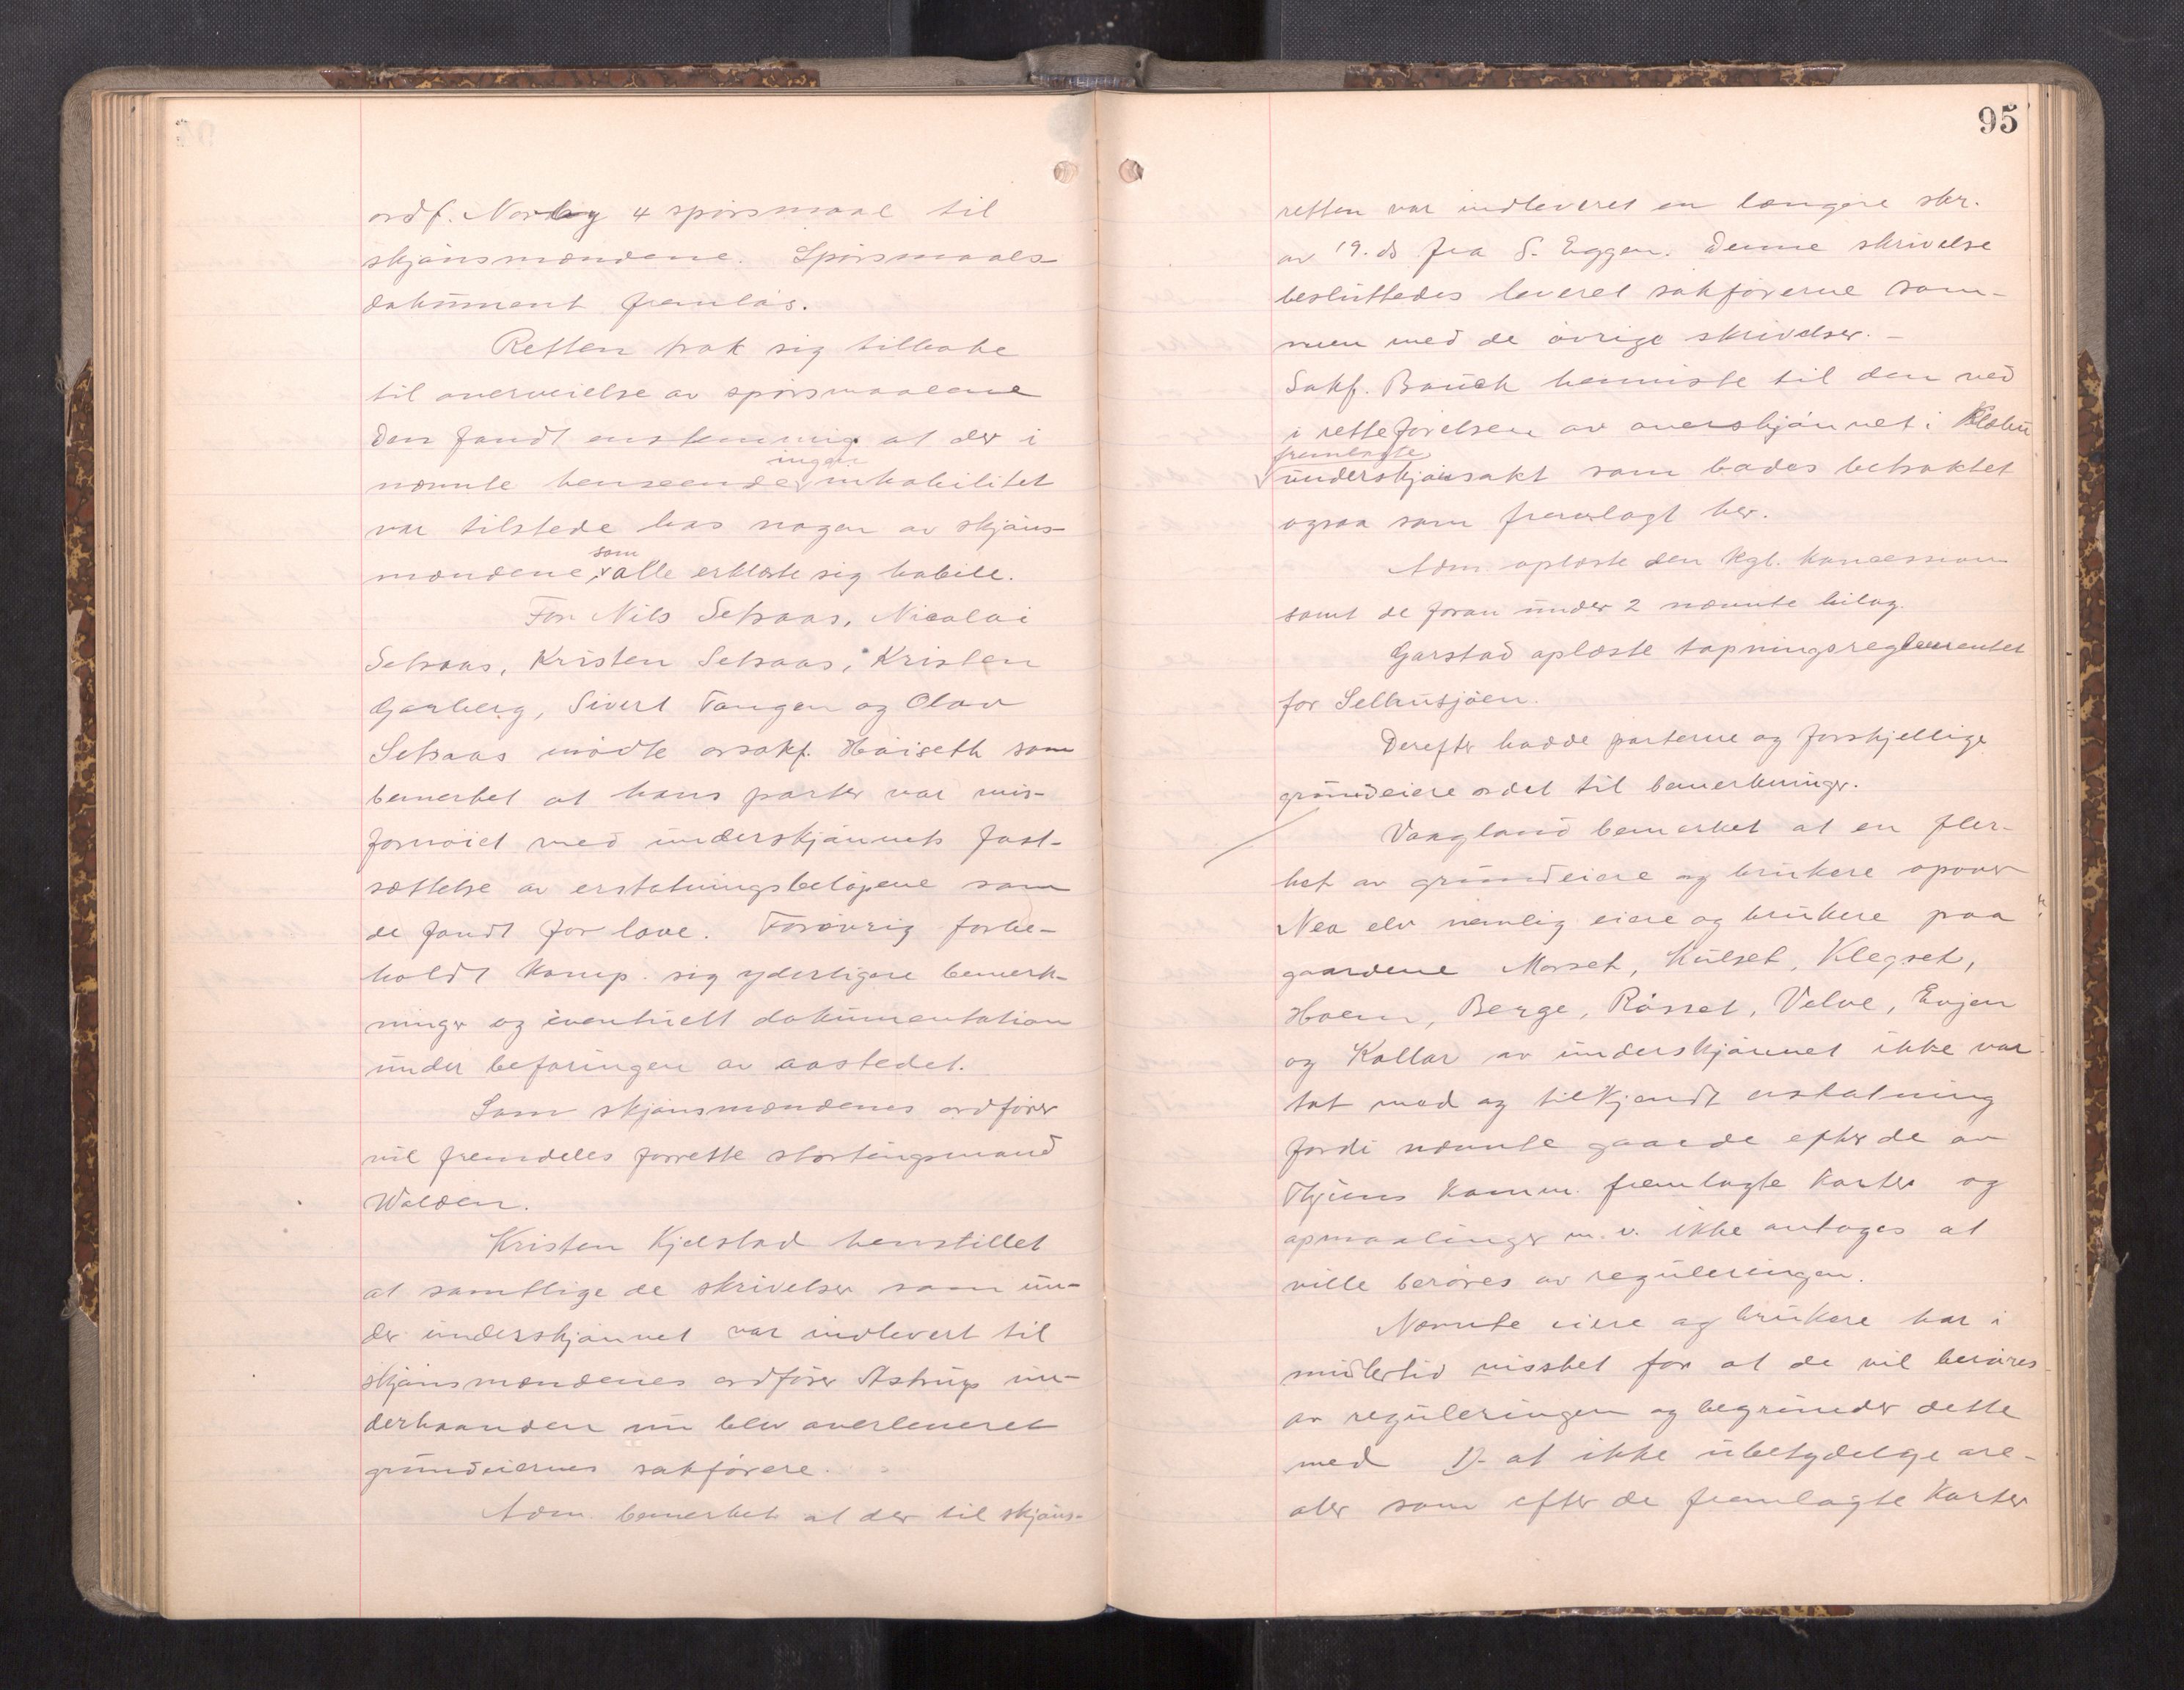 ordf. Norby 4 spörsmaal til
skjönsmændene. Spörsmaals-
dokument fremlas.
Retten trak sig tilbake
til overveielse av spörsmaalene
Den fandt enstemmig at der i
nævnte henseende ingen inhabilitet
var tilstede hos nogen av skjöns-
mændene, som alle erklærte sig habile.
For Nils Setsaas, Nicolai
Setsaas, Kristen Setsaas, Kristen
Garberg, Sivert Tangen og Olav
Setsaas mödte orsakf. Höiseth som
bemerket at hans parter var mis-
fornöiet med underskjönnets fast-
sættelse av erstatningsbelöpene som
de fandt for lave. Forövrig forbe-
holdt komp. sig yderligere bemerk-
ninger og eventuelt dokumentation
under befaringen av aastedet.
Som skjönsmændenes ordförer
vil fremdeles forrette stortingsmand
Wolden.
Kristen Kjelstad henstillet
at samtlige de skrivelser som un-
der underskjönnet var indlevert til
skjönsmændenes ordförer Astrup un-
derhaanden nu blev overleveret
grundeiernes sakförere.
Adm. bemerket at der til skjöns-
95
retten var indleveret en længere skr.
av 19. ds fra S. Eggen. Denne skrivelse
besluttedes leveret sakförerne sam-
men med de övrige skrivelser. -
Sakf. Bauck henviste til den ved
i retteförelsen av overskjönnet i Klæbu
fremlagte
underskjönsakt som bades betraktet
ogsaa som fremlagt her.
Adm. oplæste den kgl. koncession
samt de foran under 2 nævnte bilag.
Garstad oplæste tapningsreglementet
for Selbusjöen.
Derefter hadde parterne og forskjellige
grundeiere ordet til bemerkninger.
Vaagland bemerket at en fler-
het av grundeiere og brukere opover
Nea elv nemlig eiere og brukere paa
gaardene Morset, Kulset, Klegset,
Hoem, Berge, Rösset, Velve, Evjen
og Kallar av underskjönnet ikke var
tat med og tilkjendt erstatning
fordi nævnte gaarde efter de av
Thjems komm. fremlagte karter og
opmaalinger m. v. ikke antoges at
ville beröres av reguleringen.
Nævnte eiere og brukere har i
midlertid visshet for at de vil beröres
av reguleringen og begrunder dette
med 1). at ikke ubetydelige are-
aler som efter de fremlagte karter